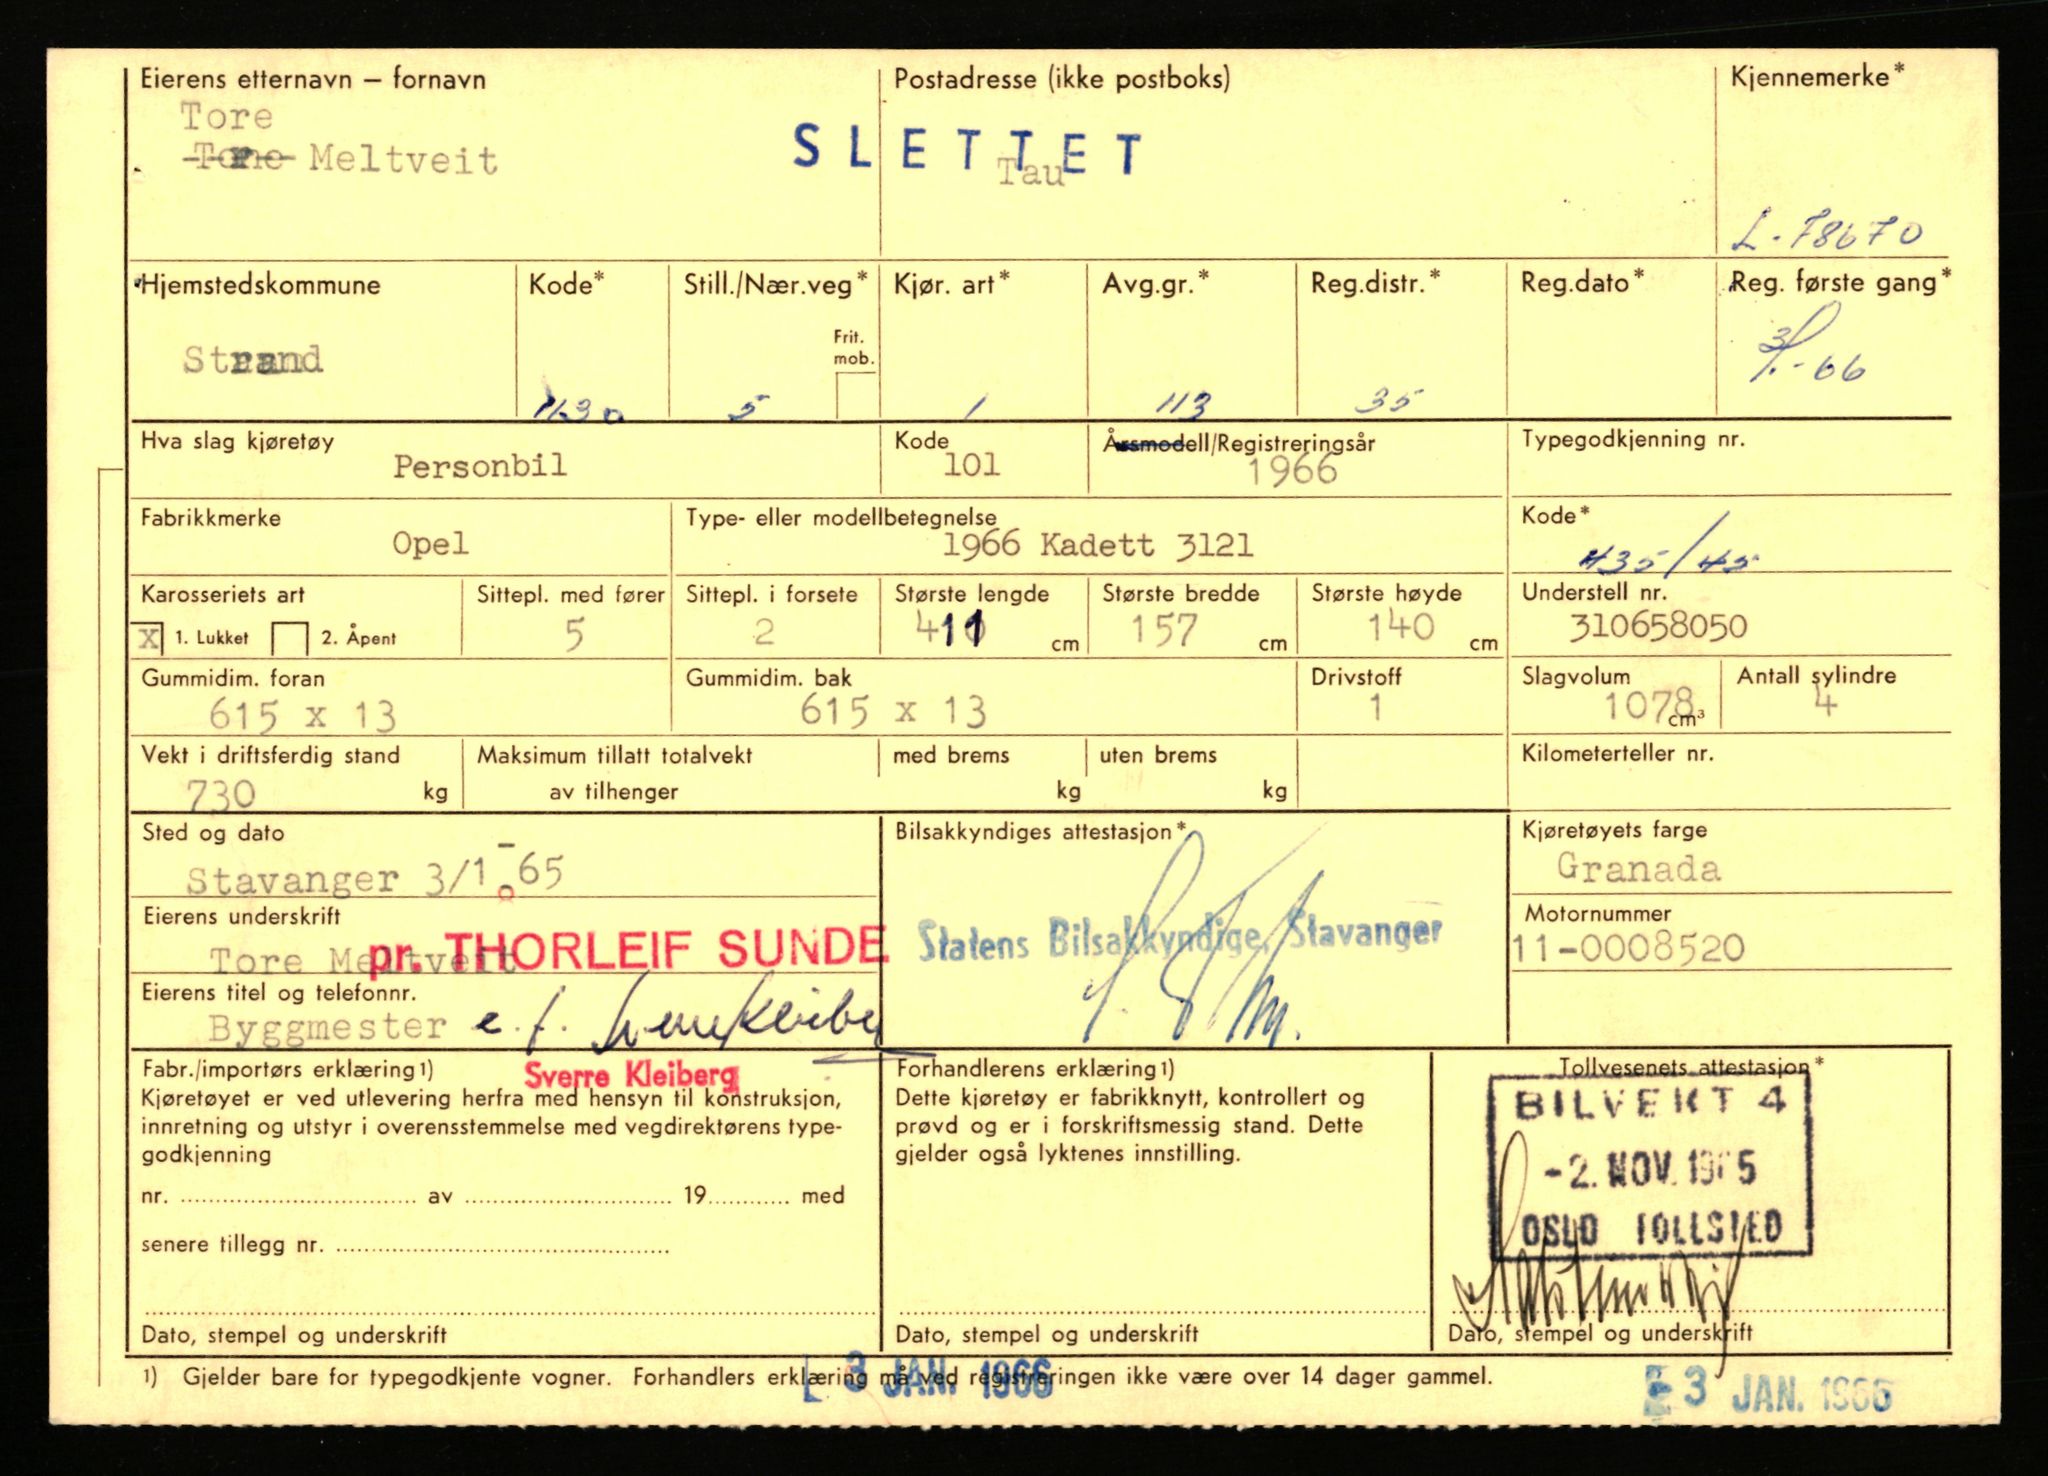 Eierens etternavn – fornavn
Postadresse (ikke postboks)
Kjennemerke*
Tore
Tore Meltveit
SLETTET
Tau
L-78670
Hjemstedskommune
Kode*
Still./Nær.veg*
Kjør. art*
Avg.gr.*
Reg.distr.*
Reg.dato*
Reg. første gang*
Frit.
mob.
Strand
1130
5
1
113
35
3/1.-66
Hva slag kjøretøy
Personbil
Kode
101
Årsmodell/Registreringsår
1966
Typegodkjenning nr.
Fabrikkmerke
Opel
Type- eller modellbetegnelse
1966 Kadett 3121
Kode*
435/45
Karosseriets art
X 1. Lukket 2. Åpent
Sittepl. med fører
5
Sittepl. i forsete
2
Største lengde
411 cm
Største bredde
157 cm
Største høyde
140 cm
Understell nr.
310658050
Gummidim. foran
615 x 13
Gummidim. bak
615 x 13
Drivstoff
1
Slagvolum
1078 cm³
Antall sylindre
4
Vekt i driftsferdig stand
730 kg
Maksimum tillatt totalvekt
av tilhenger
med brems
kg
uten brems
kg
Kilometerteller nr.
Sted og dato
Stavanger 3/1-65
Bilsakkyndiges attestasjon*
Statens Bilsakkyndige, Stavanger
Kjøretøyets farge
Granada
Eierens underskrift
Tore Meltveit
pr. THORLEIF SUNDE
Motornummer
11-0008520
Eierens titel og telefonnr.
Byggmester e.f. Sverre Kleiberg
Sverre Kleiberg
Fabr./importørs erklæring 1)
Kjøretøyet er ved utlevering herfra med hensyn til konstruksjon,
innretning og utstyr i overensstemmelse med vegdirektørens type-
godkjenning
nr. .......... av .......... 19.......... med
senere tillegg nr. ..........
Dato, stempel og underskrift
Forhandlerens erklæring 1)
Dette kjøretøy er fabrikknytt, kontrollert og
prøvd og er i forskriftsmessig stand. Dette
gjelder også lyktenes innstilling.
Dato, stempel og underskrift
Tollvesenets attestasjon*
BILVEKT 4
-2. NOV. 1965
OSLO TOLLSTED
Dato, stempel og underskrift
1) Gjelder bare for typegodkjente vogner. Forhandlers erklæring må ved registreringen ikke være over 14 dager gammel.
3 JAN. 1966
3 JAN. 1966